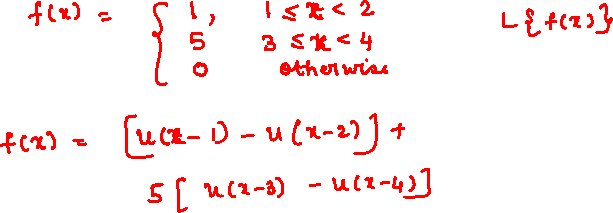 f(x) = { 1, 1 ≤ x < 2 L{f(x)}
5 3 ≤ x < 4
0 otherwise
f(x) = [u(x-1) - u(x-2)] +
5[u(x-3) - u(x-4)]